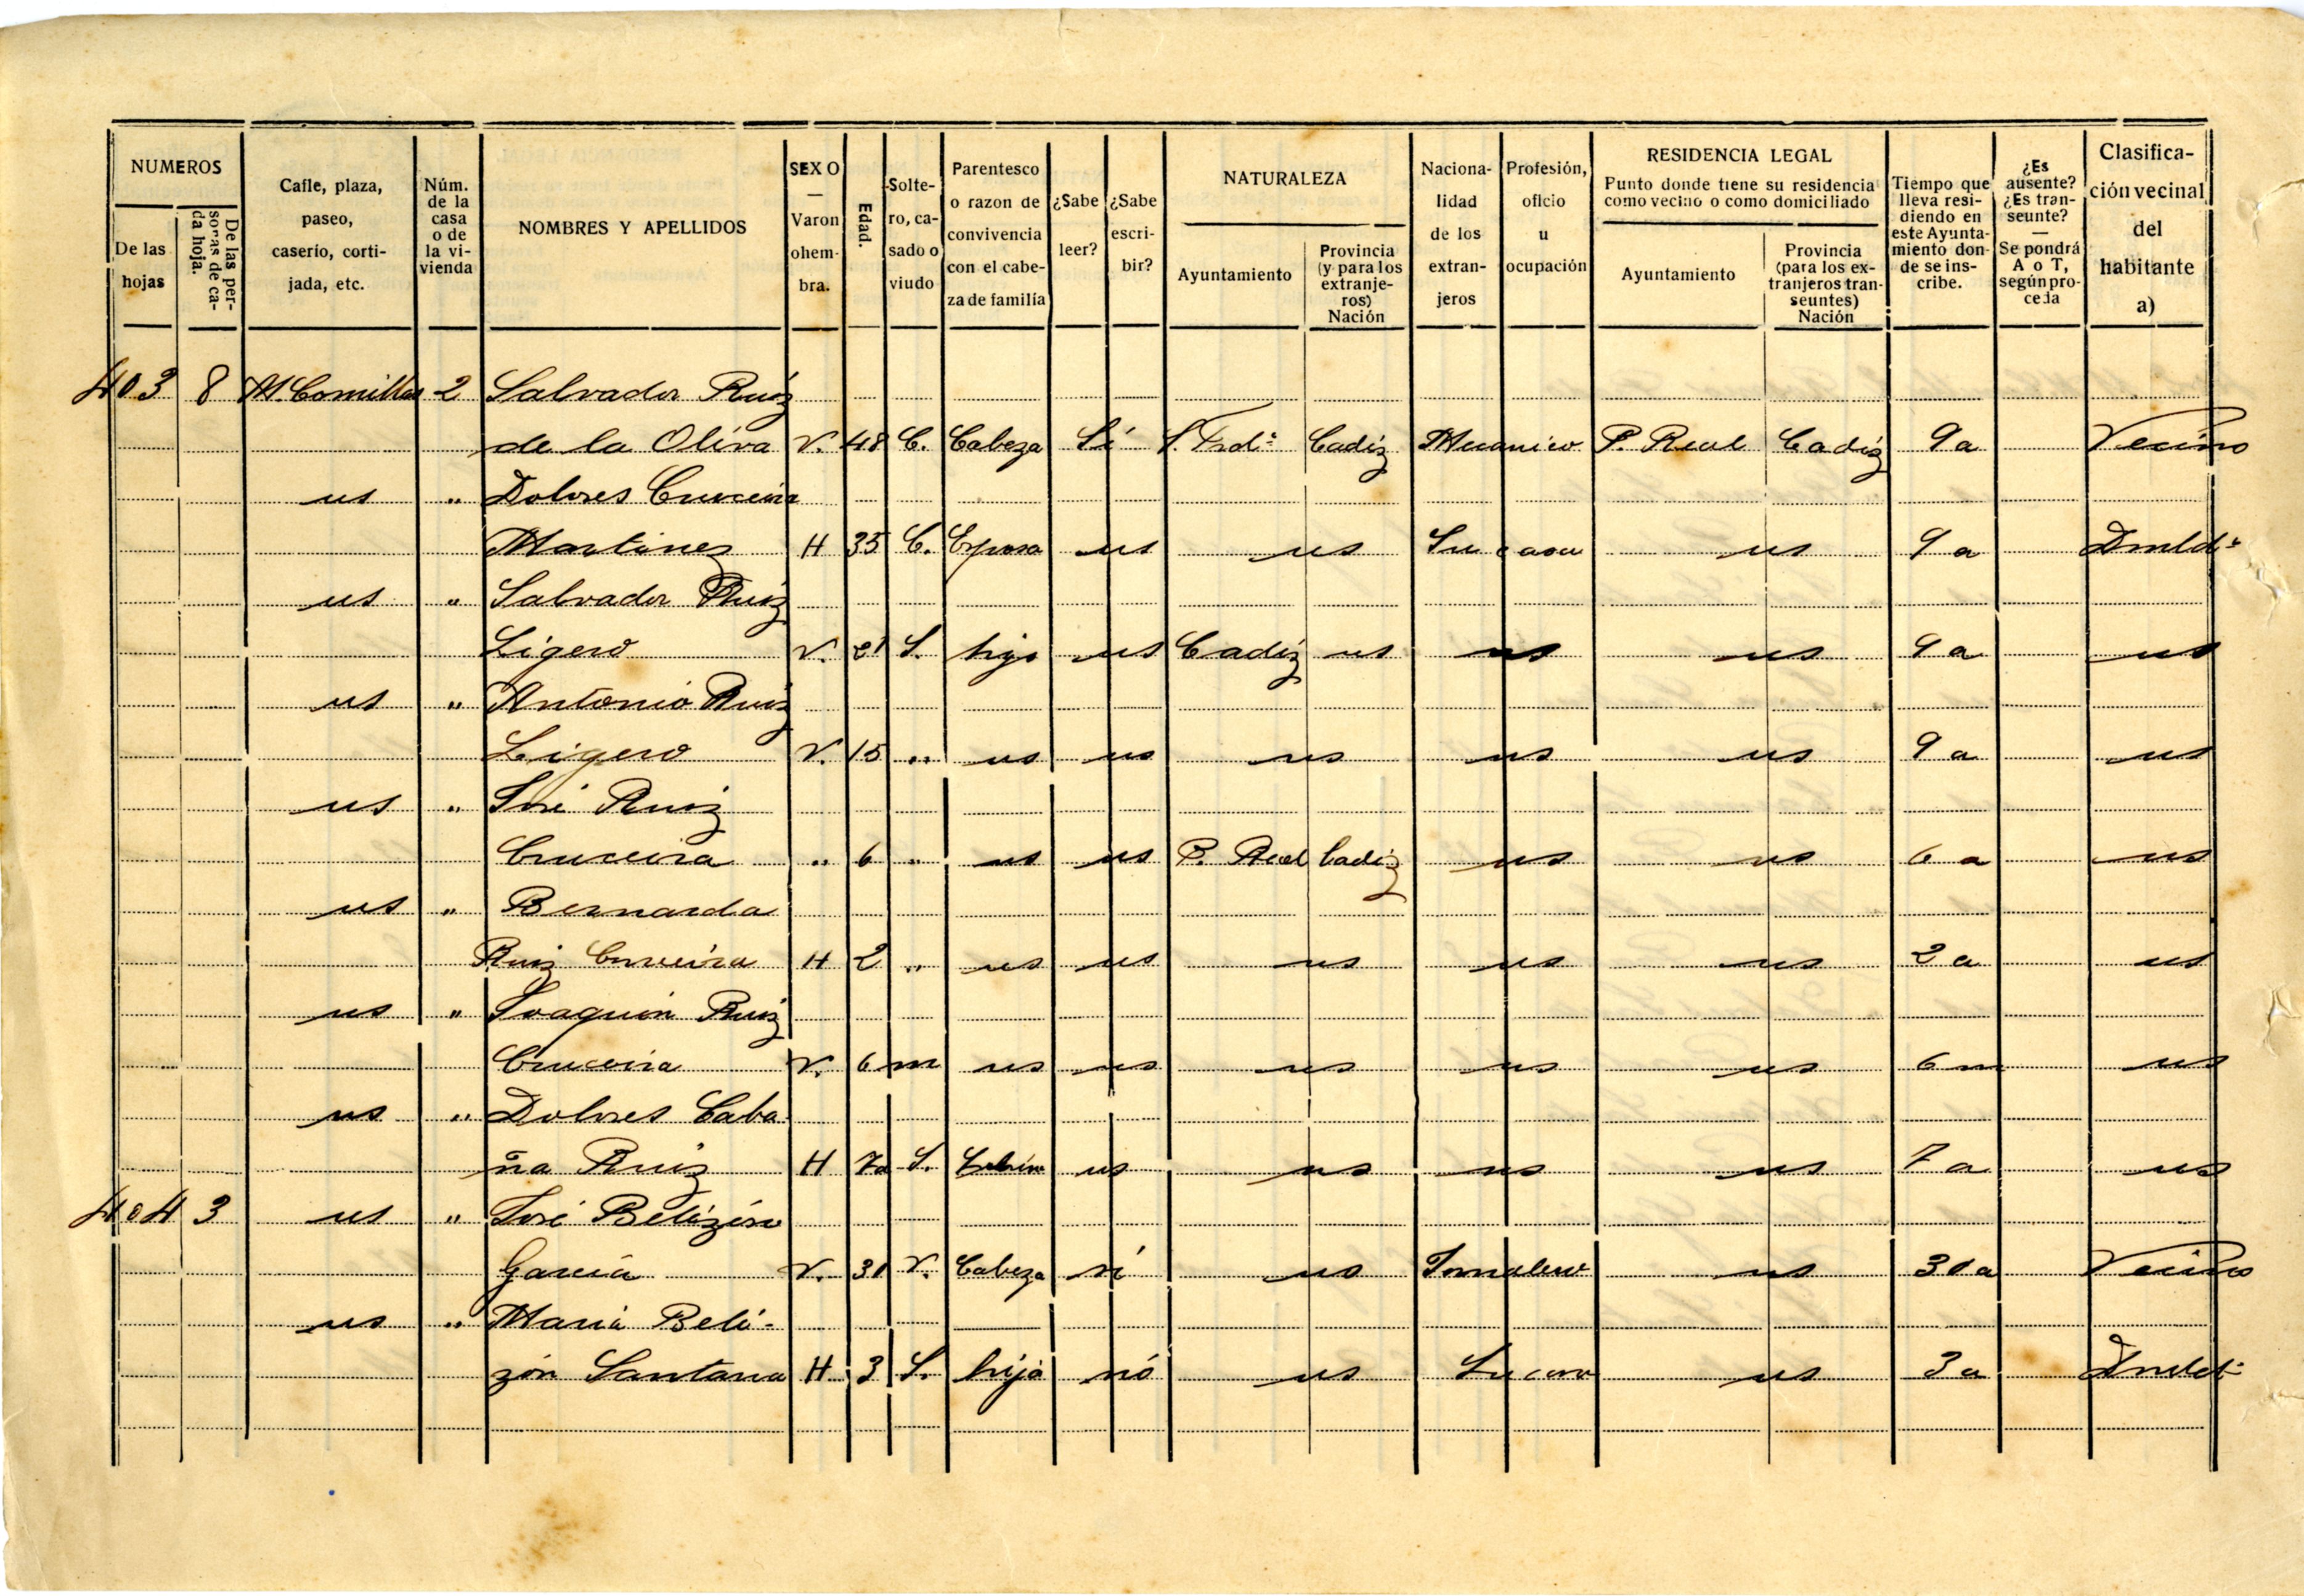 NUMEROS
De las hojas
De las personas de cada hoja.
Calle, plaza, paseo, caserío, cortijada, etc.
Núm. de la casa o de la vivienda
NOMBRES Y APELLIDOS
SEXO — Varon o hembra.
Edad.
Soltero, casado o viudo
Parentesco o razon de convivencia con el cabeza de familia
¿Sabe leer?
¿Sabe escribir?
NATURALEZA
Ayuntamiento
Provincia (y para los extranjeros) Nación
Nacionalidad de los extranjeros
Profesión, oficio u ocupación
RESIDENCIA LEGAL
Punto donde tiene su residencia como vecino o como domiciliado
Ayuntamiento
Provincia (para los extranjeros transeuntes) Nación
Tiempo que lleva residiendo en este Ayuntamiento donde se inscribe.
¿Es ausente? ¿Es transeunte? — Se pondrá A o T, según proceda
Clasificación vecinal del habitante a)
403 8 M. Comillas 2 Salvador Ruiz
de la Oliva V. 48 C. Cabeza Sí S. Frdº Cadiz Mecanico P. Real Cadiz 9a Vecino
us " Dolores Cruceira
Martinez H 35 C. Esposa us us Su casa us 9 a Dmldº
us " Salvador Ruiz
Ligero V. 21 S. hijo us Cadiz us us us 9 a us
us " Antonio Ruiz
Ligero V. 15 " us us us us us 9 a us
us " José Ruiz
Cruceira " 6 " us us P. Real Cadiz us us 6 a us
us " Bernarda
Ruiz Cruceira H 2 " us us us us us 2 a us
us " Joaquin Ruiz
Cruceira V. 6 m us us us us us 6 m us
us " Dolores Caba
ña Ruiz H 7a S. us us us us 7 a us
404 3 us " José Belizón
Garcia V. 31 V. Cabeza sí us Jornalero us 31 a Vecino
us " Maria Beli-
zón Santana H 3 S. hija nó us Su casa us 3 a Dmldº